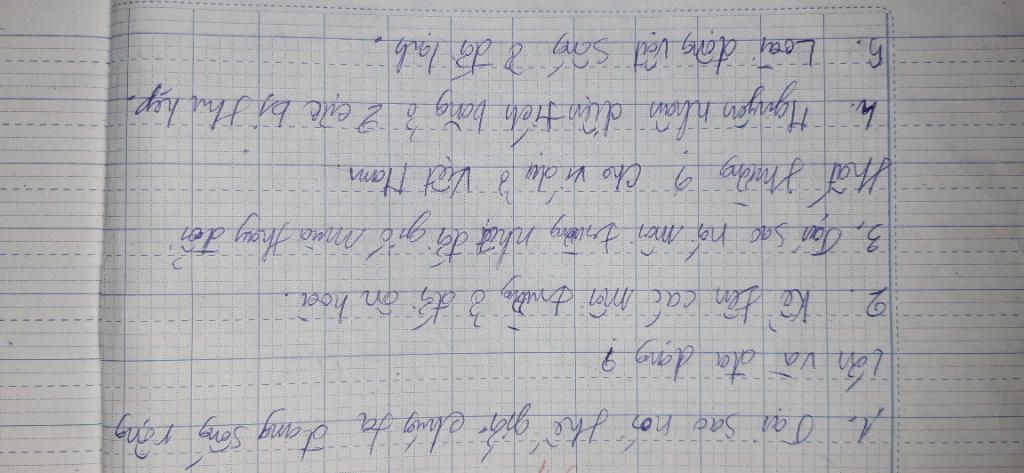 1. Tại sao nói thế giới chúng ta đang sống rộng
lớn và đa dạng ?
2. Kể tên các môi trường ở đới ôn hoà.
3. Tại sao nói môi trường nhiệt đới gió mùa thay đổi
thất thường ? Cho ví dụ ở Việt Nam.
4. Nguyên nhân diện tích băng ở 2 cực bị thu hẹp.
5. Loài động vật sống ở đới lạnh.